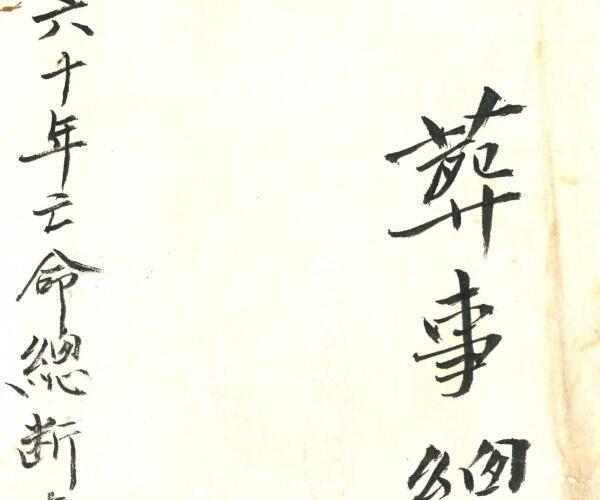 葬事
六十年亡命總断